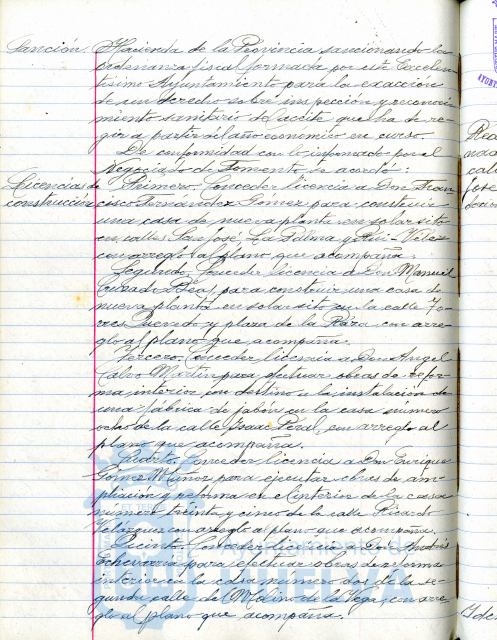 Sanción. Hacienda de la Provincia sancionando la
ordenanza fiscal formada por este Excelen
tísimo Ayuntamiento para la exacción
de un derecho sobre inspección y reconoci
miento sanitario de aceite que ha de re-
gir a partir del año económico en curso.
De conformidad con lo informado por el
Negociado de Fomento se acordó:
Licencias de Primero. Conceder licencia a Don Fran
construcción cisco Fernández Gómez para construir
una casa de nueva planta en solar sito
en calles San José, La Palma y Rui-Vélez
con arreglo al plano que acompaña.
Segundo. Conceder licencia a Don Manuel
para construir una casa de
nueva planta en solar sito en la calle
Quevedo y plaza de la con arre
glo al plano que acompaña.
Tercero. Conceder licencia a Don Angel
Calvo Martín para efectuar obras de refor
ma interior con destino a la instalación de
una fábrica de jabón en la casa número
ocho de la calle Isaac Peral, con arreglo al
plano que acompaña.
Cuarto. Conceder licencia a Don Enrique
Gómez Muñoz para ejecutar obras de am
pliación y reforma en el interior de la casa
número treinta y cinco de la calle Ricardo
Velázquez con arreglo al plano que acompaña.
Quinto. Conceder licencia a Don Andrés
Echevarría para efectuar obras de reforma
interior en la casa número dos de la se
gunda calle de Molino de la Vega, con arre
glo al plano que acompaña.